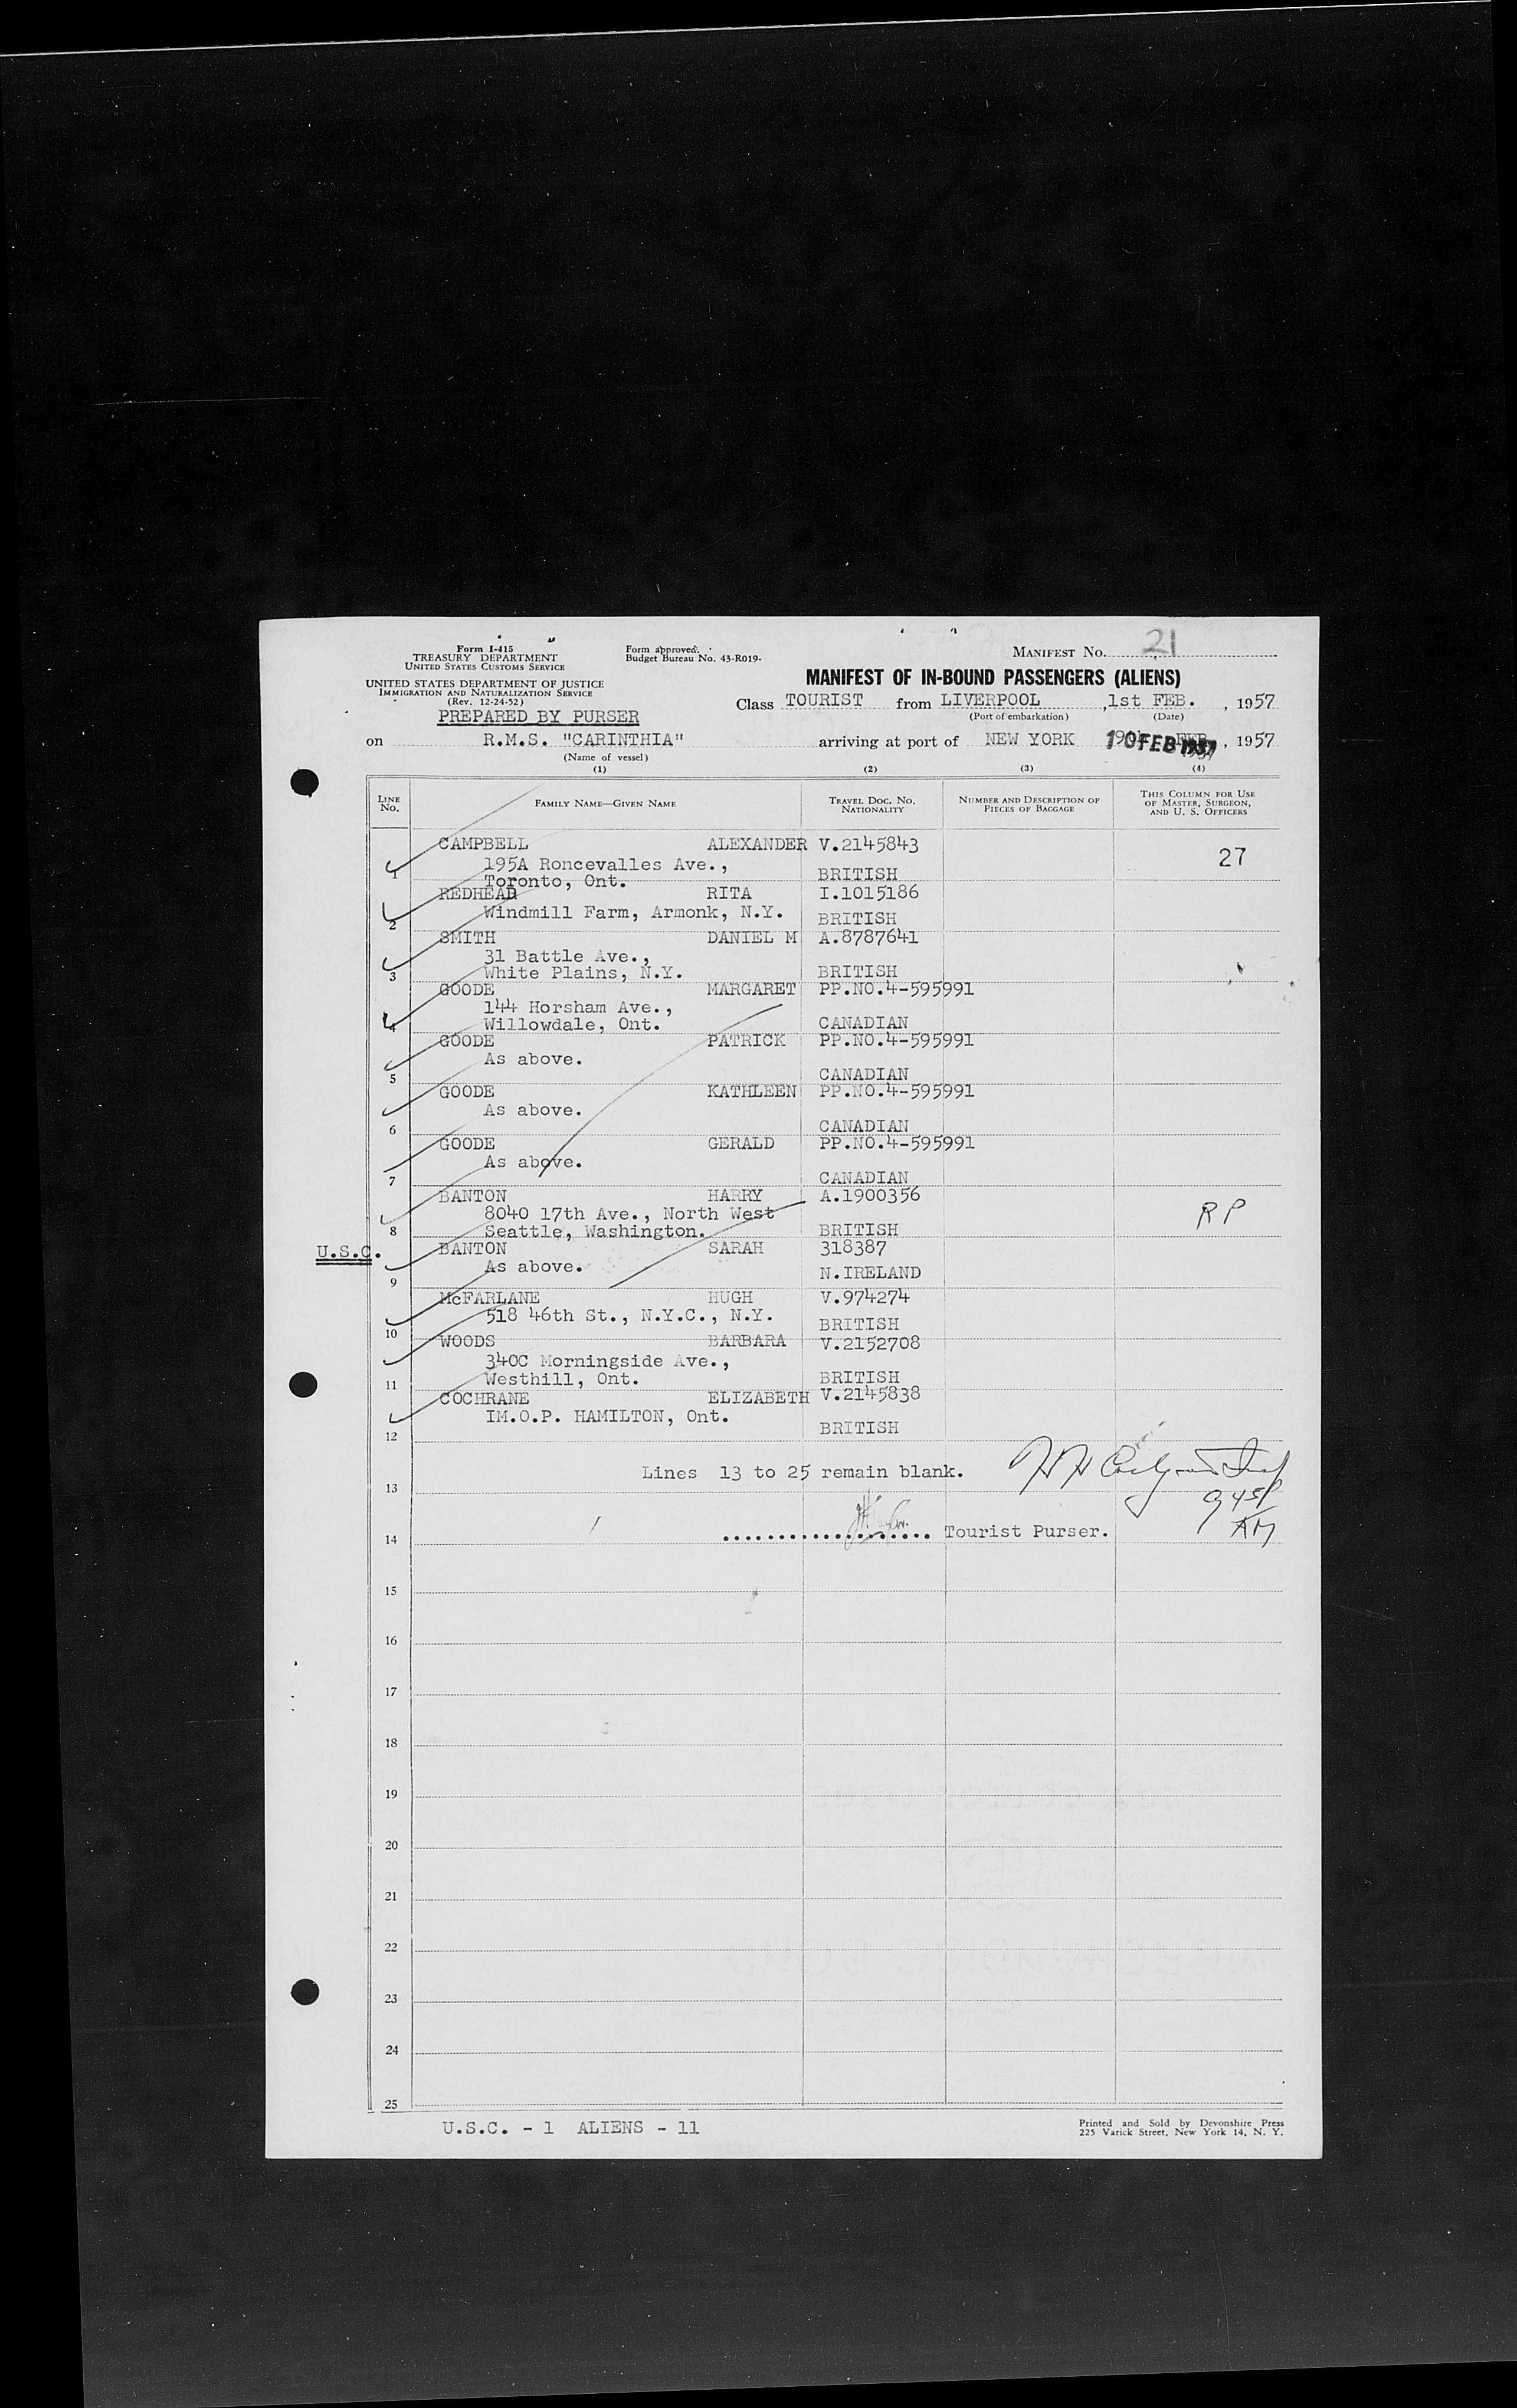 Form I-415
TREASURY DEPARTMENT
UNITED STATES CUSTOMS SERVICE
Form approved.
Budget Bureau No. 43-R019-
MANIFEST NO. 21
UNITED STATES DEPARTMENT OF JUSTICE
IMMIGRATION AND NATURALIZATION SERVICE
(Rev. 12-24-52)
PREPARED BY PURSER
MANIFEST OF IN-BOUND PASSENGERS (ALIENS)
Class TOURIST from LIVERPOOL ,1st FEB. , 1957
(Port of embarkation) (Date)
on R.M.S. "CARINTHIA" arriving at port of NEW YORK 10 FEB 1957 , 1957
(Name of vessel)
(1) (2) (3) (4)
LINE NO. FAMILY NAME—GIVEN NAME TRAVEL DOC. NO. NATIONALITY NUMBER AND DESCRIPTION OF PIECES OF BAGGAGE THIS COLUMN FOR USE OF MASTER, SURGEON, AND U. S. OFFICERS
CAMPBELL ALEXANDER V.2145843
195A Roncevalles Ave., 27
1 Toronto, Ont. BRITISH
REDHEAD RITA I.1015186
2 Windmill Farm, Armonk, N.Y. BRITISH
SMITH DANIEL M A.8787641
31 Battle Ave.,
3 White Plains, N.Y. BRITISH
GOODE MARGARET PP.NO.4-595991
144 Horsham Ave.,
4 Willowdale, Ont. CANADIAN
GOODE PATRICK PP.NO.4-595991
As above.
5 CANADIAN
GOODE KATHLEEN PP.NO.4-595991
As above.
6 CANADIAN
GOODE GERALD PP.NO.4-595991
As above.
7 CANADIAN
BANTON HARRY A.1900356
8040 17th Ave., North West R P
8 Seattle, Washington. BRITISH
U.S.C. BANTON SARAH 318387
As above.
9 N.IRELAND
McFARLANE HUGH V.974274
518 46th St., N.Y.C., N.Y.
10 BRITISH
WOODS BARBARA V.2152708
340C Morningside Ave.,
11 Westhill, Ont. BRITISH
COCHRANE ELIZABETH V.2145838
IM.O.P. HAMILTON, Ont.
12 BRITISH
Lines 13 to 25 remain blank.
13
945
AM
14 Tourist Purser.
15
16
17
18
19
20
21
22
23
24
25
U.S.C. - 1 ALIENS - 11
Printed and Sold by Devonshire Press
225 Varick Street, New York 14, N. Y.